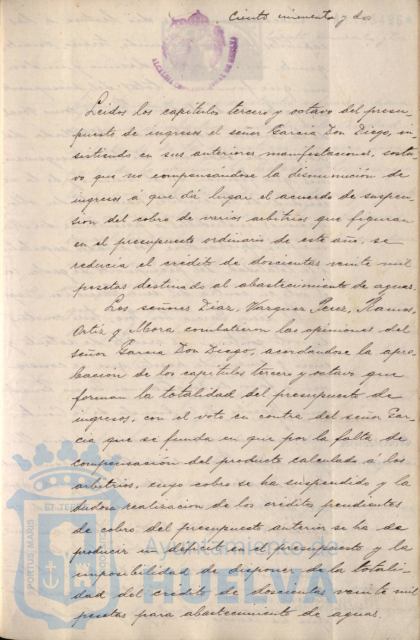 Ciento cincuenta y dos
Leidos los capítulos tercero y octavo del presu-
puesto de ingresos el señor Garcia Don Diego, in-
sistiendo en sus anteriores manifestaciones, sostu-
vo que no compensandose la disminución de
ingresos á que dá lugar el acuerdo de suspen-
sion del cobro de varios arbitrios que figuran
en el presupuesto ordinario de este año, se
reducia el crédito de doscientas veinte mil
pesetas destinado al abastecimiento de aguas.
Los señores Diaz, Vazquez Perez, Ramos,
Ortiz y Mora combatieron las opiniones del
señor Garcia Don Diego, acordándose la apro-
bación de los capítulos tercero y octavo que
forman la totalidad del presupuesto de
ingresos, con el voto en contra del señor Gar-
cia que se funda en que por la falta de
compensación del producto calculado á los
arbitrios, cuyo cobro se ha suspendido y la
dudosa realizacion de los créditos pendientes
de cobro del presupuesto anterior se ha de
producir un déficit en el presupuesto y la
imposibilidad de disponer de la totali-
dad del crédito de doscientas veinte mil
pesetas para abastecimiento de aguas.
PORTUS MARIS
Ayuntamiento de
HUELVA